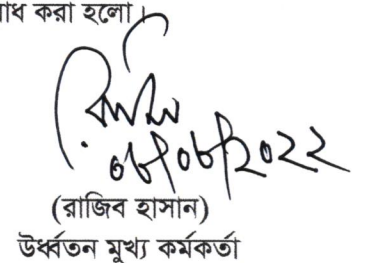 াধ করা হলো।
০৮/০৮/২০২২
(রাজিব হাসান)
উর্ধ্বতন মুখ্য কর্মকর্তা